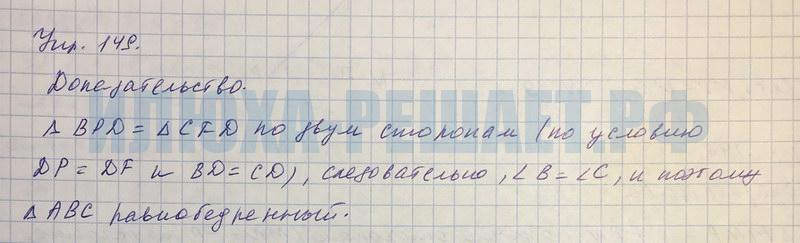 Упр. 149.
Доказательство.
ИЛЮХА-РЕШАЕТ.РФ
△ BPD = △ CFD по двум сторонам (по условию
DP = DF и BD = CD), следовательно, ∠B = ∠C, и поэтому
△ ABC равнобедренный.